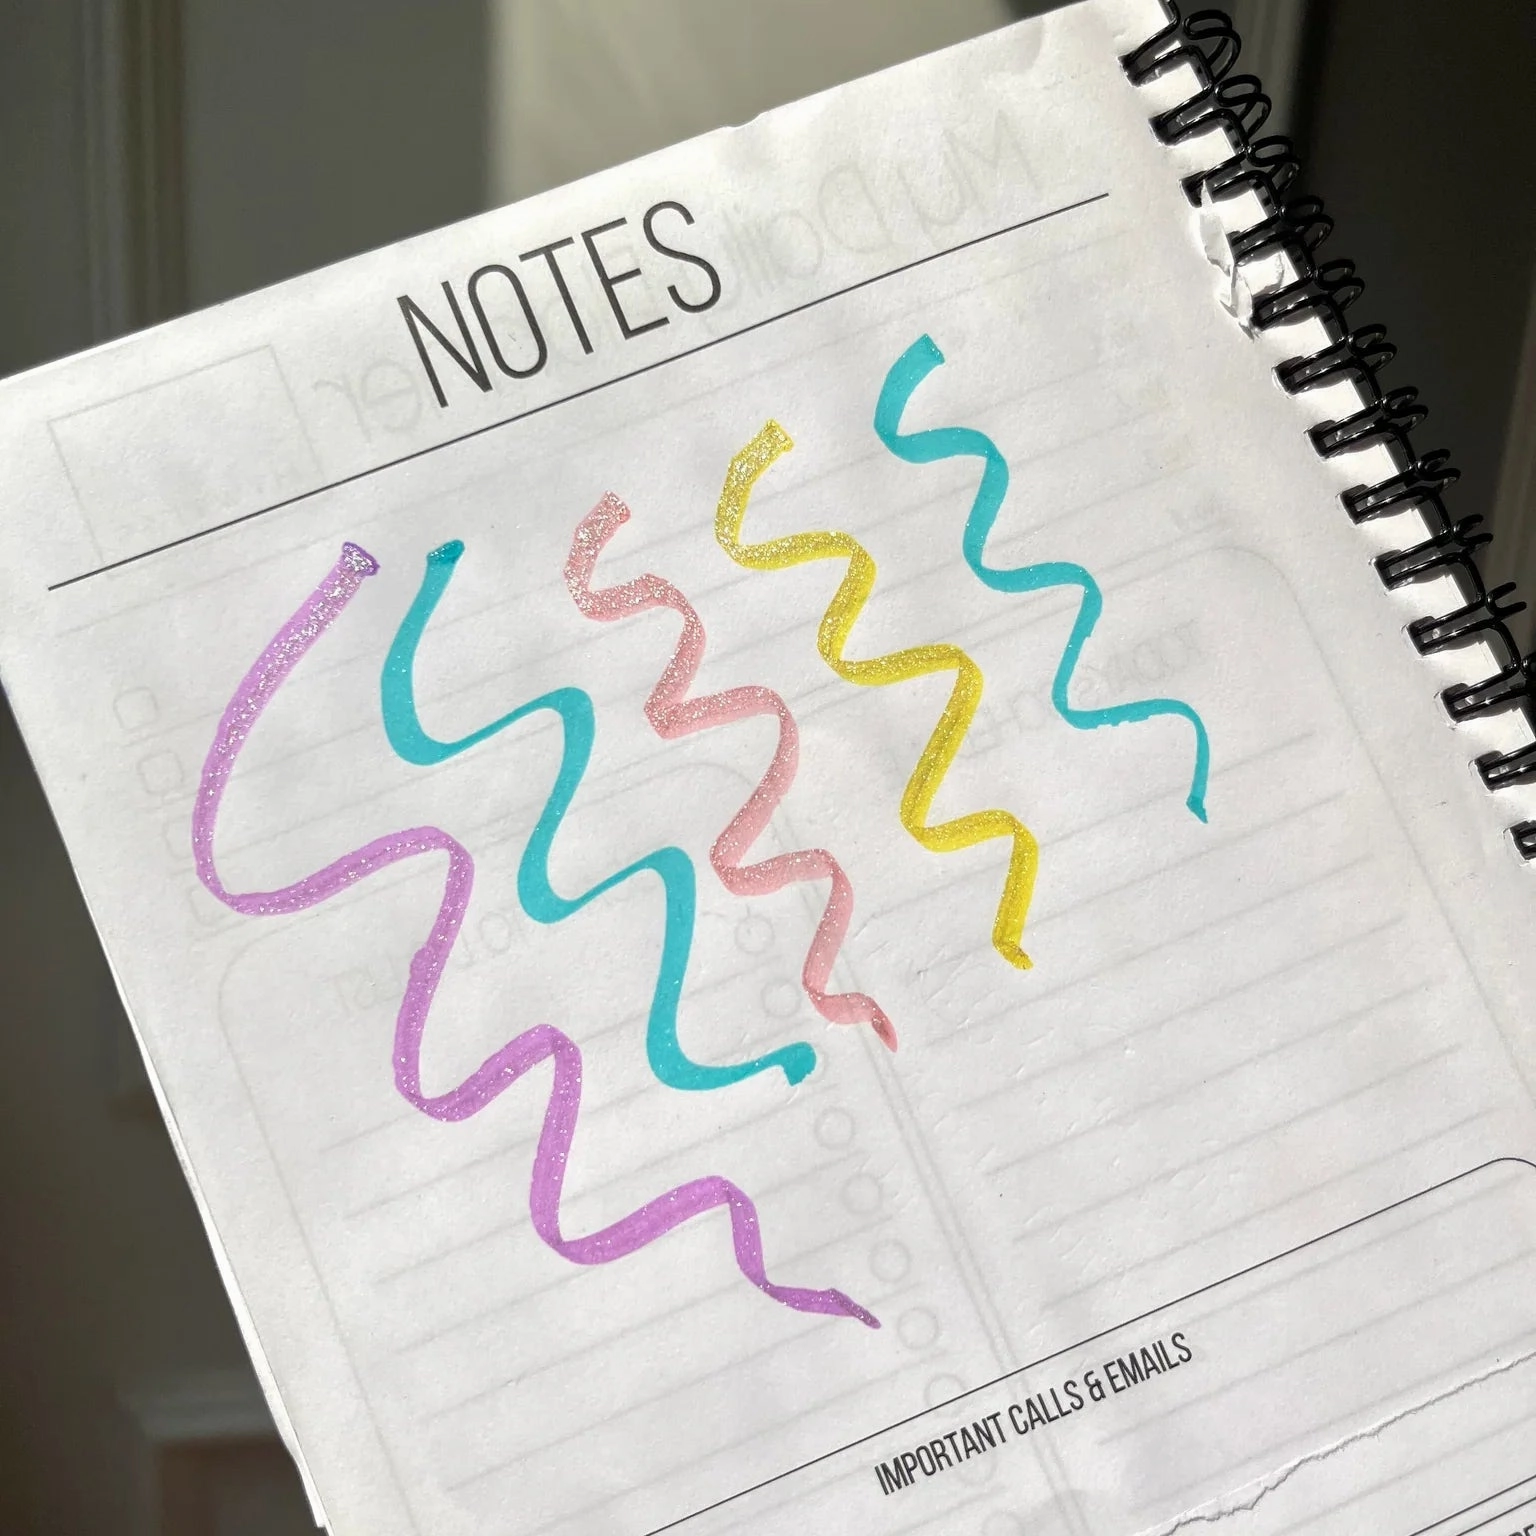 NOTES
IMPORTANT CALLS & EMAILS